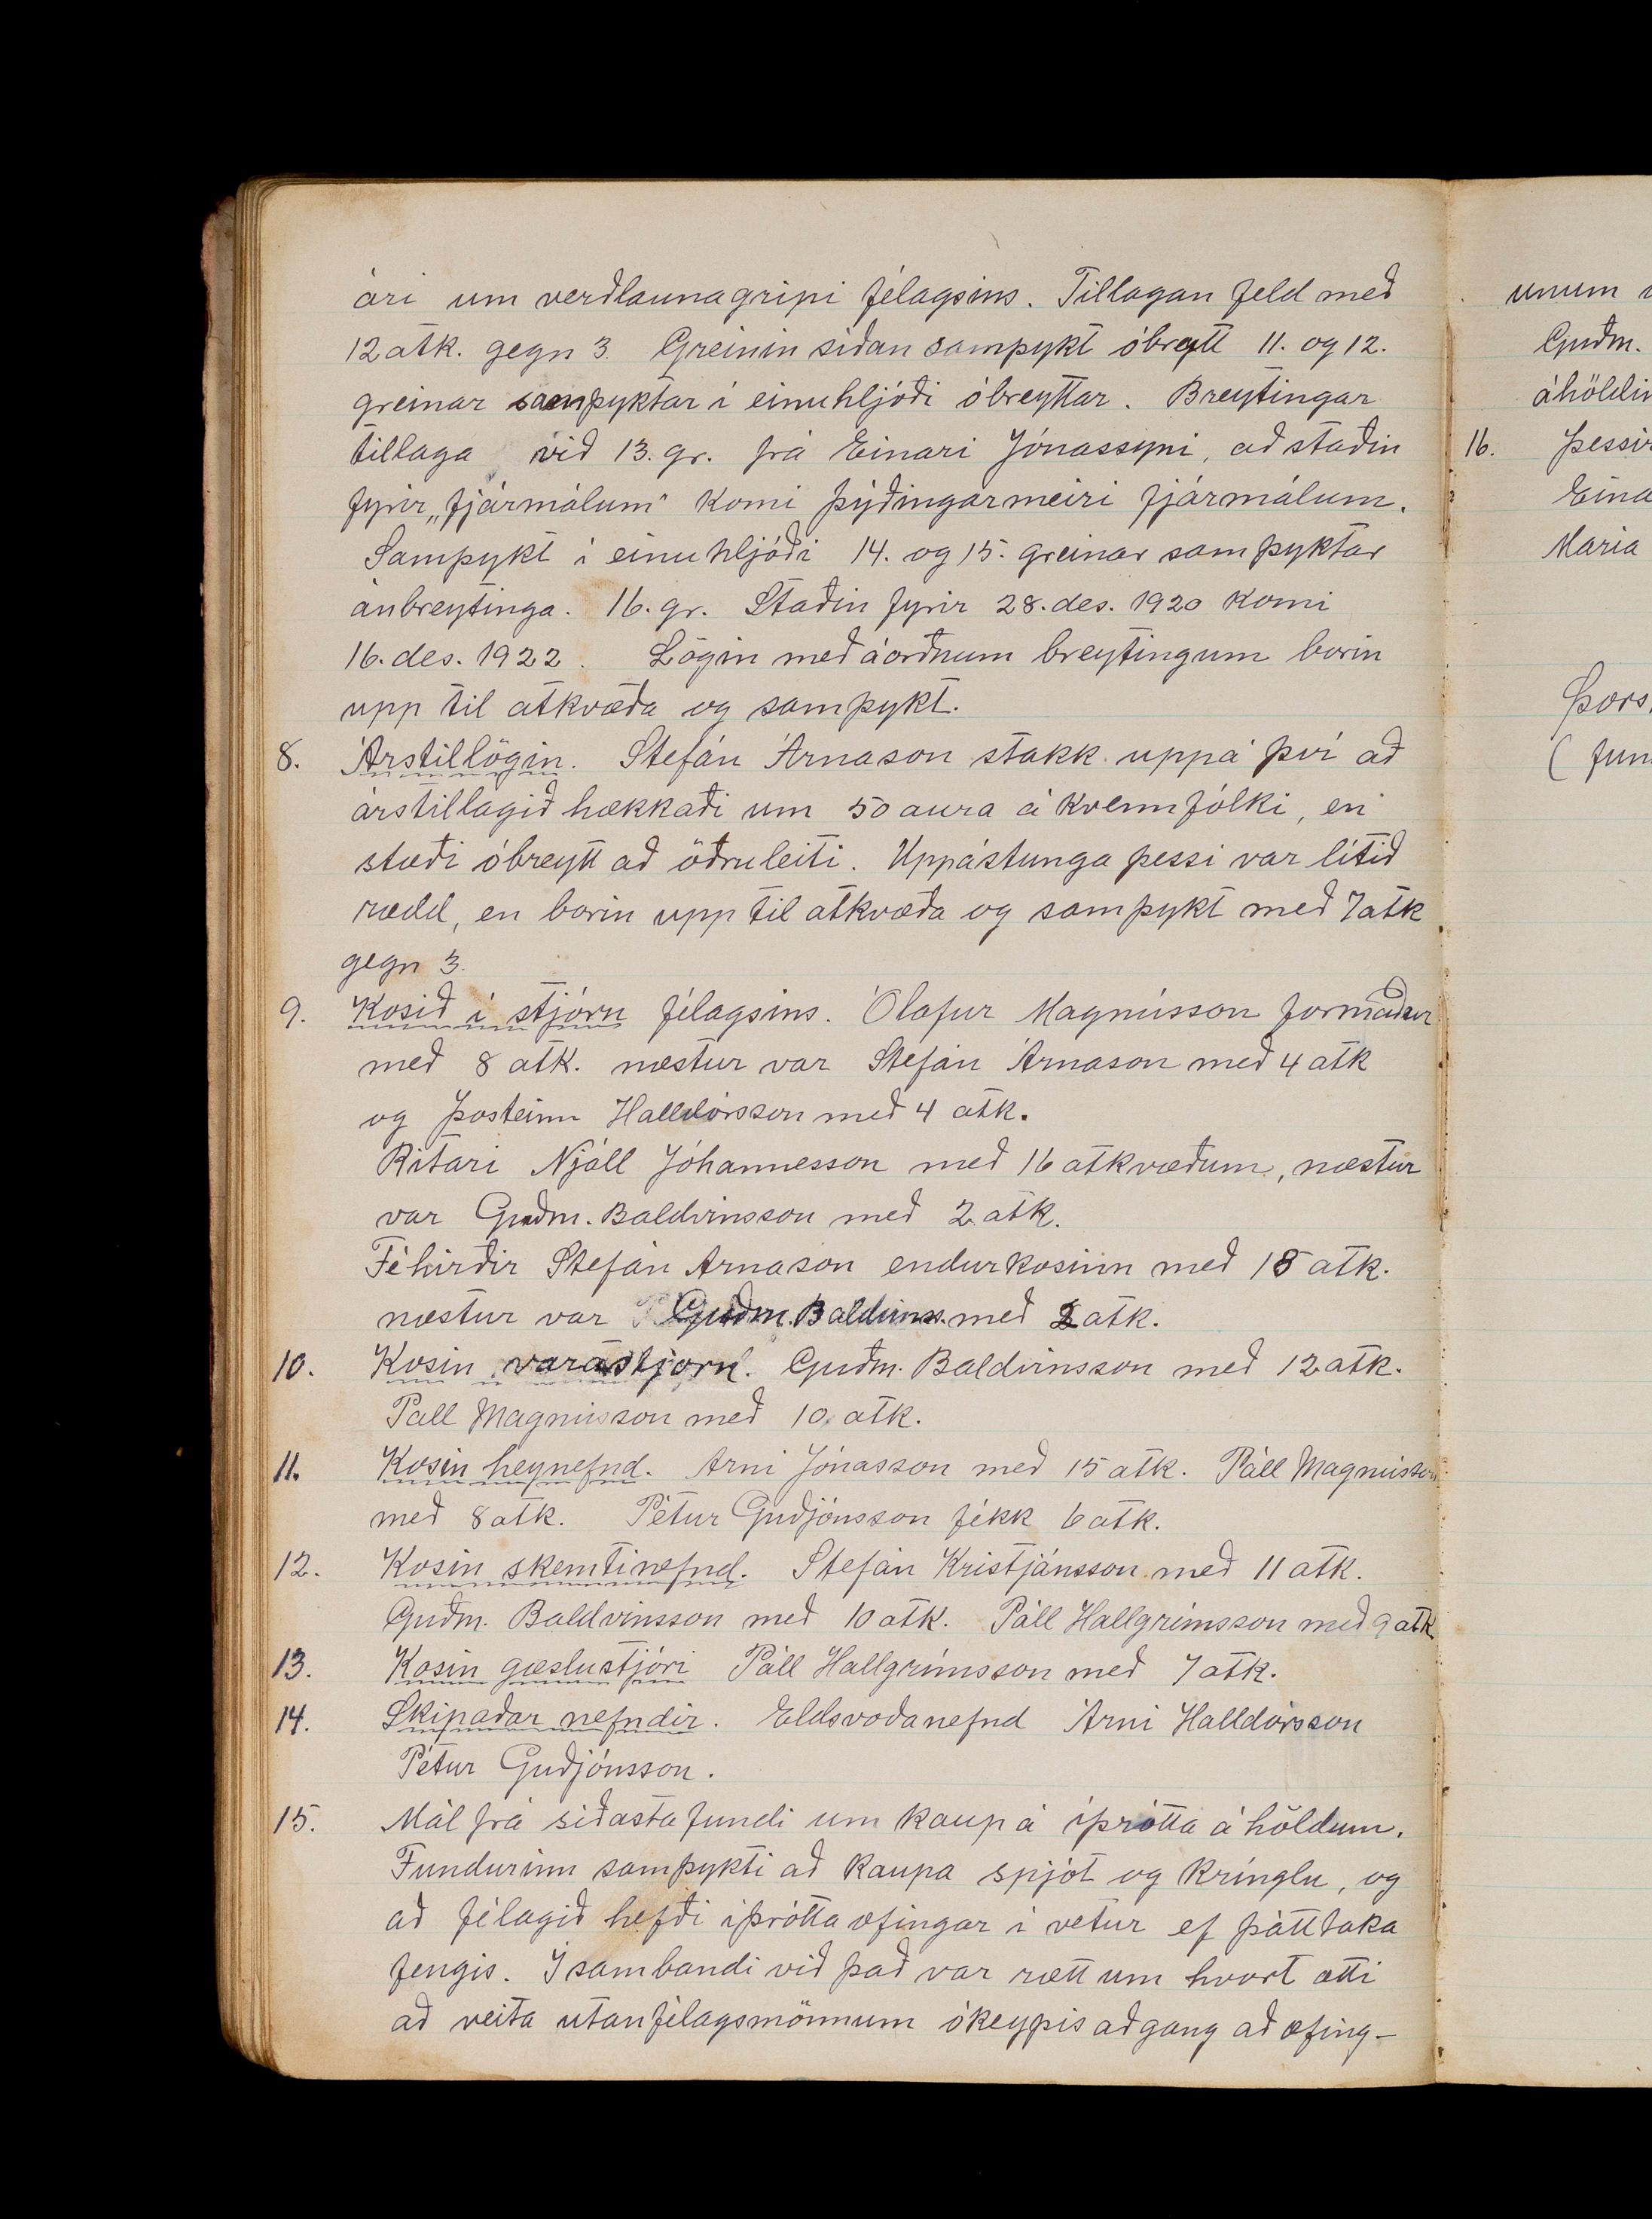 ári um verðlaunagripi félagsins. Tillagan feld með
12 atk. gegn 3. Greinin siðan samþykt óbreytt 11. og 12.
greinar samþyktar í einuhljóði óbreyttar. Breytingar
tillaga við 13. gr. frá Einari Jónassyni, að staðin
fyrir „fjármálum" komi þýðingarmeiri fjármálum.
Samþykt í einuhljóði 14. og 15. greinar samþyktar
ánbreytinga. 16. gr. Staðin fyrir 28. des. 1920 komi
16. des. 1922. Lögin með áorðnum breytingum borin
upp til atkvæða og samþykt.
8. Árstillögin. Stefán Árnason stakk uppá því að
árstillagið hækkaði um 50 aura á kvennfólki, en
stæði óbreytt að öðruleiti. Uppástunga þessi var lítið
rædd, en borin upp til atkvæða og samþykt með 7 atk
gegn 3.
9. Kosið í stjórn félagsins. Ólafur Magnússon formaður
með 8 atk. næstur var Stefán Árnason með 4 atk
og Þosteinn Halldórsson með 4 atk.
Ritari Njáll Jóhannesson með 16 atkvæðum, næstur
var Guðm. Baldvinsson með 2 atk.
Féhirðir Stefán Arnason endurkosinn með 15 atk.
næstur var Guðm. Baldvinss. með 2 atk.
10. Kosin varastjorn. Guðm. Baldvinsson með 12 atk.
Pall Magnússon með 10 atk.
11. Kosin heynefnd. Arni Jónasson með 15 atk. Páll Magnússon
með 8 atk. Pétur Guðjónsson fékk 6 atk.
12. Kosin skemtinefnd. Stefán Kristjánsson með 11 atk.
Guðm. Baldvinsson með 10 atk. Páll Hallgrímsson með 9 atk
13. Kosin gæslustjóri Páll Hallgrímsson með 7 atk.
14. Skipaðar nefndir. Eldsvoðanefnd Árni Halldórsson
Pétur Guðjónsson.
15. Mál frá siðasta fundi um kaup á íþrótta á höldum.
Fundurinn samþykti að kaupa spjót og kringlu, og
að félagið hefði íþrótta æfingar í vetur ef þátttaka
fengis. Í sambandi við það var rætt um hvort ætti
að veita utanfélagsmönnum ókeypis aðgang að æfing-
unum
Guðm.
áhöldin
16. Þessir
Eina
Maria
Þors
( fun